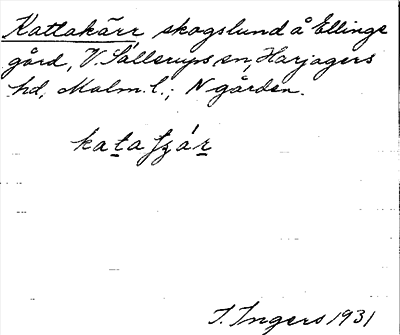 Kattakärr skogslund å Ellinge
gård, V. Sallerups sn, Harjagers
hd, Malm. l.; N gården.
I. Ingers 1931